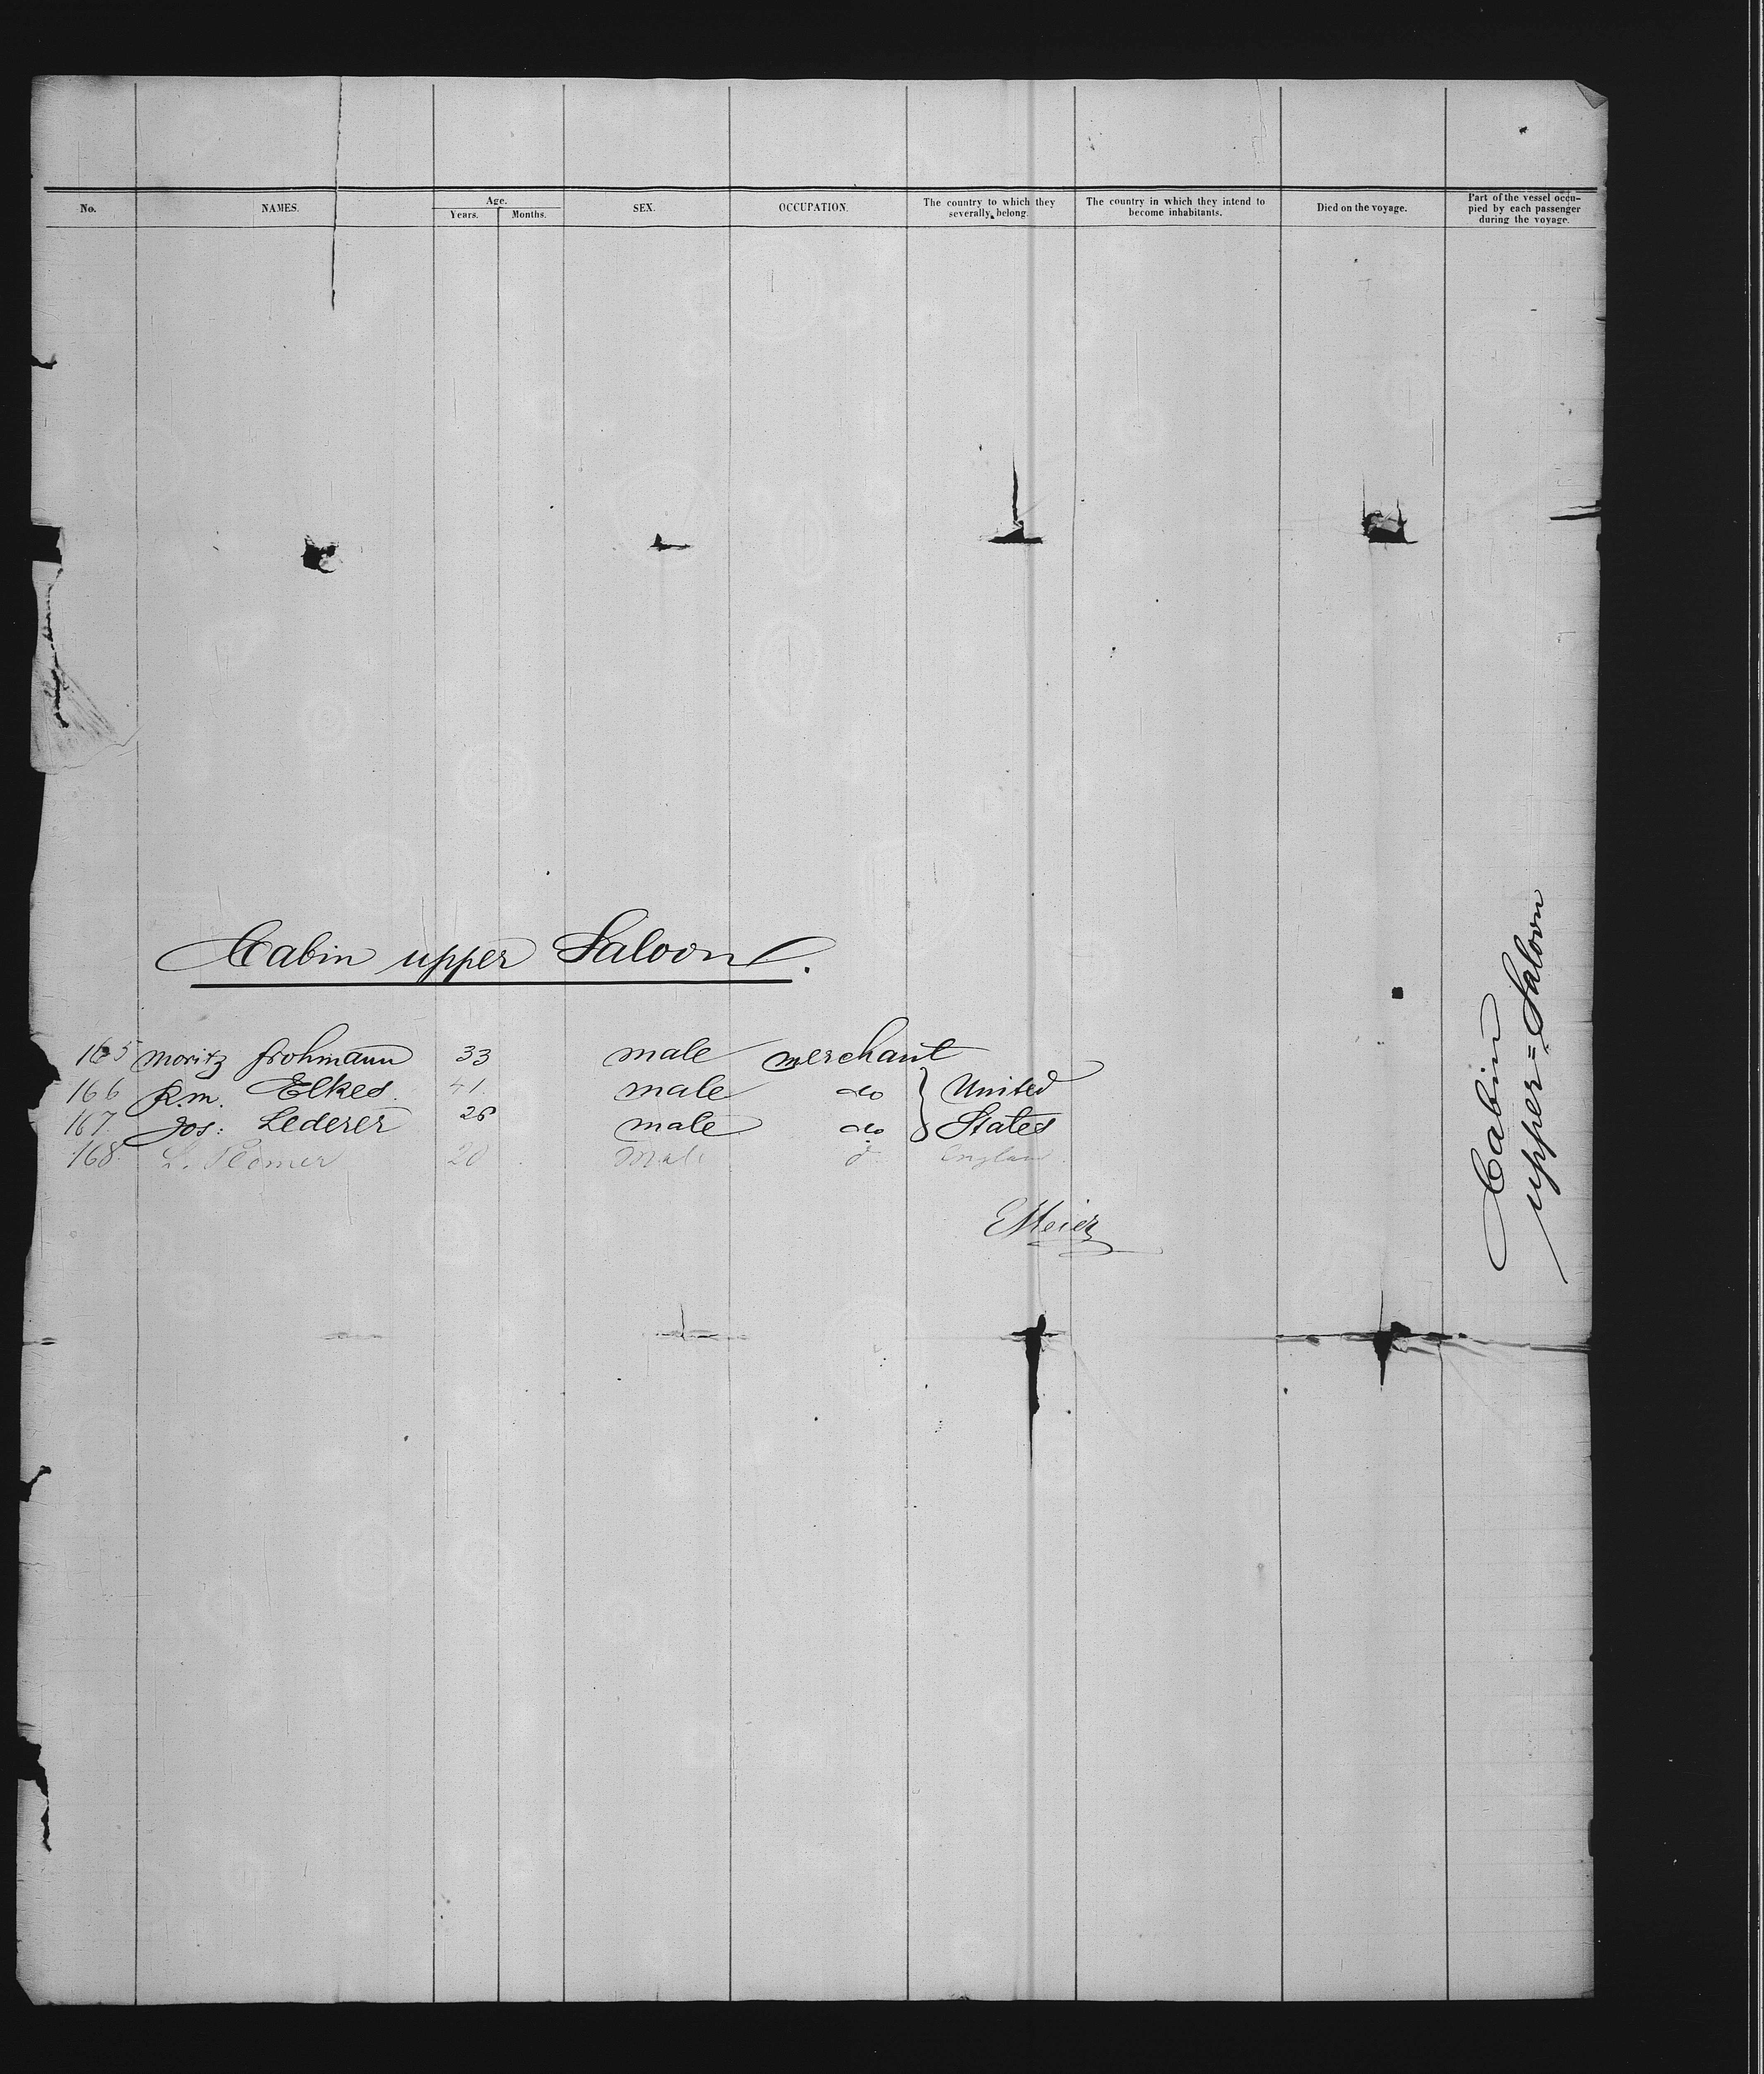 No. NAMES. Age. Years. Months. SEX. OCCUPATION. The country to which they severally belong. The country in which they intend to become inhabitants. Died on the voyage. Part of the vessel occupied by each passenger during the voyage.
Cabin upper Saloon.
165 Moritz Frohmann 33 male merchant
166 R.M. Elkes. 41. male do } United
167. Jos: Lederer 26 male do } States
168. L. 20 Male d England.
EMeier
Cabin
upper=Saloon